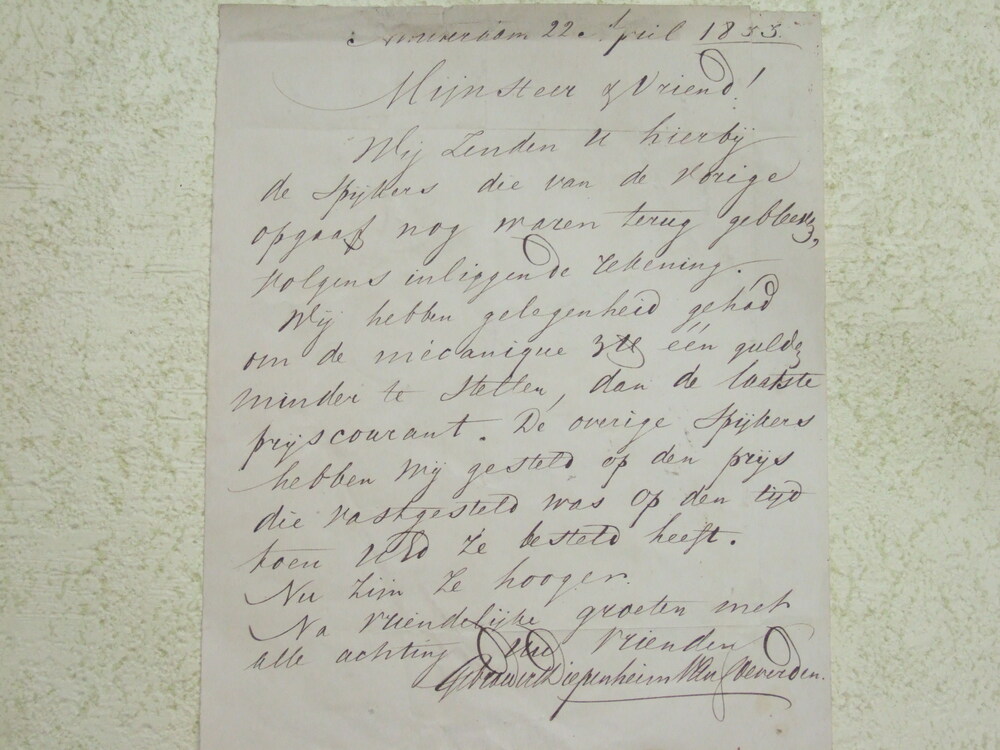 22 April 1855
Mijn Heer & Vriend!
Wij Zenden U hierbij
de Spijkers die van de Vorige
opgaaf nog waren terug gebleven,
Volgens inliggende rekening.
Wij hebben gelegenheid gehad
om de mécanique één gulden
minder te Stellen, dan de laatste
pryscourant. De overige Spijkers
hebben Wij gesteld op den prijs
die vastgesteld was op den tijd
toen UEd Ze besteld heeft.
Nu Zijn Ze hooger.
Na Vriendelijke groeten met
alle achting Uw Vrienden
Diepenheim